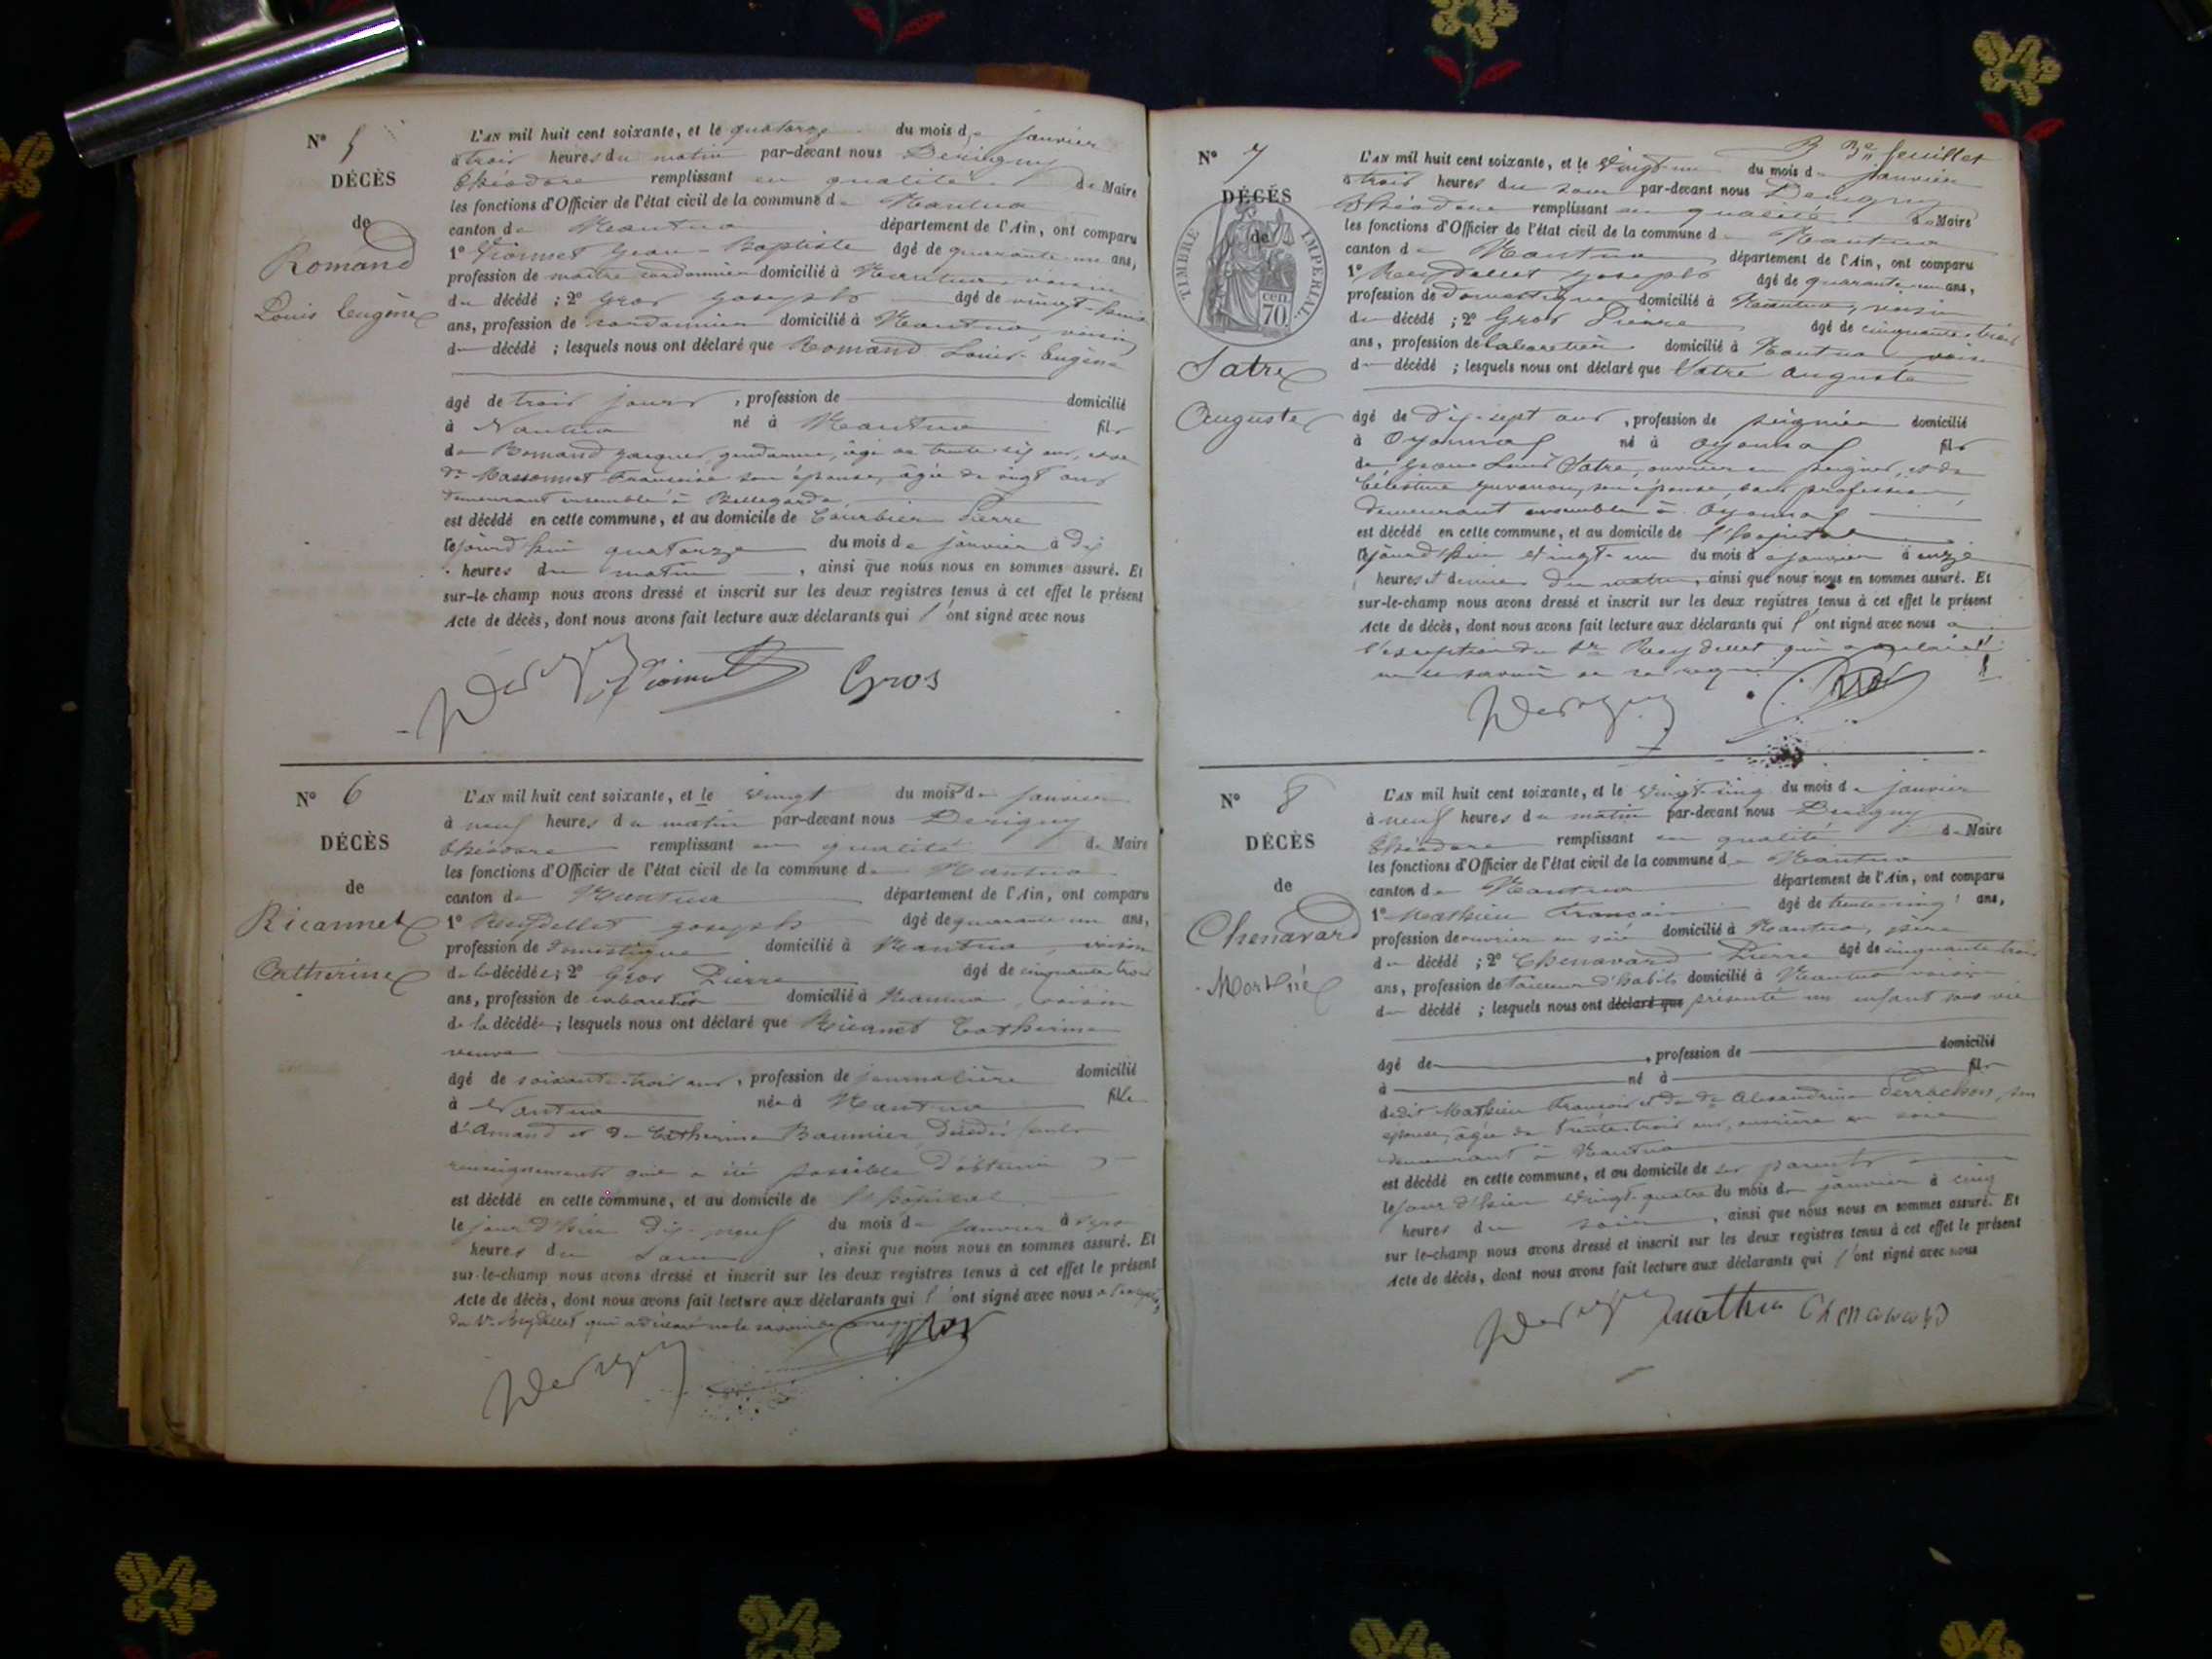 N° 5
DÉCÈS
de
Romand
Louis Eugène
L'AN mil huit cent soixante, et le quatorze du mois de janvier
à trois heures du matin par-devant nous Derigny
Théodore remplissant en qualité de Maire
les fonctions d'Officier de l'état civil de la commune de Nantua
canton de Nantua département de l'Ain, ont comparu
1° Viornet Jean-Baptiste âgé de quarante un ans,
profession de maître cordonnier domicilié à Nantua, voisin
du décédé ; 2° Gros Joseph âgé de vingt-huit
ans, profession de cordonnier domicilié à Nantua, voisin
du décédé ; lesquels nous ont déclaré que Romand Louis-Eugène
âgé de trois jours, profession de domicilié
à Nantua né à Nantua fils
de Romand Jacques, gendarme, âgé de trente six ans, et de
de Massonnet Françoise son épouse, âgée de vingt ans
demeurant ensemble à Bellegarde
est décédé en cette commune, et au domicile de Courbier Pierre
le jourd'hui quatorze du mois de janvier à dix
heures du matin, ainsi que nous nous en sommes assuré. Et
sur-le-champ nous avons dressé et inscrit sur les deux registres tenus à cet effet le présent
Acte de décès, dont nous avons fait lecture aux déclarants qui l'ont signé avec nous
Gros
N° 6
DÉCÈS
de
Ricannet
Catherine
L'AN mil huit cent soixante, et le vingt du mois de janvier
à neuf heures du matin par-devant nous Derigny
Théodore remplissant en qualité de Maire
les fonctions d'Officier de l'état civil de la commune de Nantua
canton de Nantua département de l'Ain, ont comparu
1° Reydellet Joseph âgé de quarante un ans,
profession de domestique domicilié à Nantua, voisin
de la décédée ; 2° Gros Pierre âgé de cinquante trois
ans, profession de cabaretier domicilié à Nantua, voisin
de la décédée ; lesquels nous ont déclaré que Ricannet Catherine
veuve
âgé de soixante-trois ans, profession de journalière domicilié
à Nantua née à Nantua fille
d'Amand et de Catherine Baumier, décédés seuls
renseignements qu'il a été possible d'obtenir
est décédé en cette commune, et au domicile de l'hôpital
le jour d'hier dix-neuf du mois de janvier à sept
heures du soir, ainsi que nous nous en sommes assuré. Et
sur-le-champ nous avons dressé et inscrit sur les deux registres tenus à cet effet le présent
Acte de décès, dont nous avons fait lecture aux déclarants qui l'ont signé avec nous à l'exception
du Sr Reydellet qui a déclaré ne le savoir de ce requis
N° 7
3e feuillet
DÉCÈS
de
TIMBRE IMPERIAL
70 cen.
Satre
Auguste
L'AN mil huit cent soixante, et le vingt-un du mois de janvier
à trois heures du soir par-devant nous Derigny
Théodore remplissant en qualité de Maire
les fonctions d'Officier de l'état civil de la commune de Nantua
canton de Nantua département de l'Ain, ont comparu
1° Reydellet Joseph âgé de quarante un ans,
profession de domestique domicilié à Nantua, voisin
du décédé ; 2° Gros Pierre âgé de cinquante-trois
ans, profession de cabaretier domicilié à Nantua, voisin
du décédé ; lesquels nous ont déclaré que Satre Auguste
âgé de dix-sept ans, profession de peignier domicilié
à Oyonnax né à Oyonnax fils
de Jean Louis Satre, ouvrier en peignes, et de
Célestine son épouse, sans profession
demeurant ensemble à Oyonnax
est décédé en cette commune, et au domicile de l'hôpital
le jourd'hui vingt-un du mois de janvier à onze
heures et demie du matin, ainsi que nous nous en sommes assuré. Et
sur-le-champ nous avons dressé et inscrit sur les deux registres tenus à cet effet le présent
Acte de décès, dont nous avons fait lecture aux déclarants qui l'ont signé avec nous à
l'exception du Sr Reydellet qui a déclaré
ne le savoir de ce requis
N° 8
DÉCÈS
de
Chenavard
Mort né
L'AN mil huit cent soixante, et le vingt-cinq du mois de janvier
à neuf heures du matin par-devant nous Derigny
Théodore remplissant en qualité de Maire
les fonctions d'Officier de l'état civil de la commune de Nantua
canton de Nantua département de l'Ain, ont comparu
1° Mathieu François âgé de trente-cinq ans,
profession de ouvrier en soie domicilié à Nantua, père
du décédé ; 2° Chenavard Pierre âgé de cinquante trois
ans, profession de tailleur d'habits domicilié à Nantua voisin
du décédé ; lesquels nous ont déclaré que présenté un enfant sans vie
âgé de , profession de domicilié
à né à fils
de dit Mathieu François et de de Alexandrine Perrachon, son
épouse, âgée de trente-trois ans, ouvrière en soie
demeurant à Nantua
est décédé en cette commune, et au domicile de ses parents
le jour d'hier vingt-quatre du mois de janvier à cinq
heures du soir, ainsi que nous nous en sommes assuré. Et
sur le-champ nous avons dressé et inscrit sur les deux registres tenus à cet effet le présent
Acte de décès, dont nous avons fait lecture aux déclarants qui l'ont signé avec nous
Mathieu Chenavard